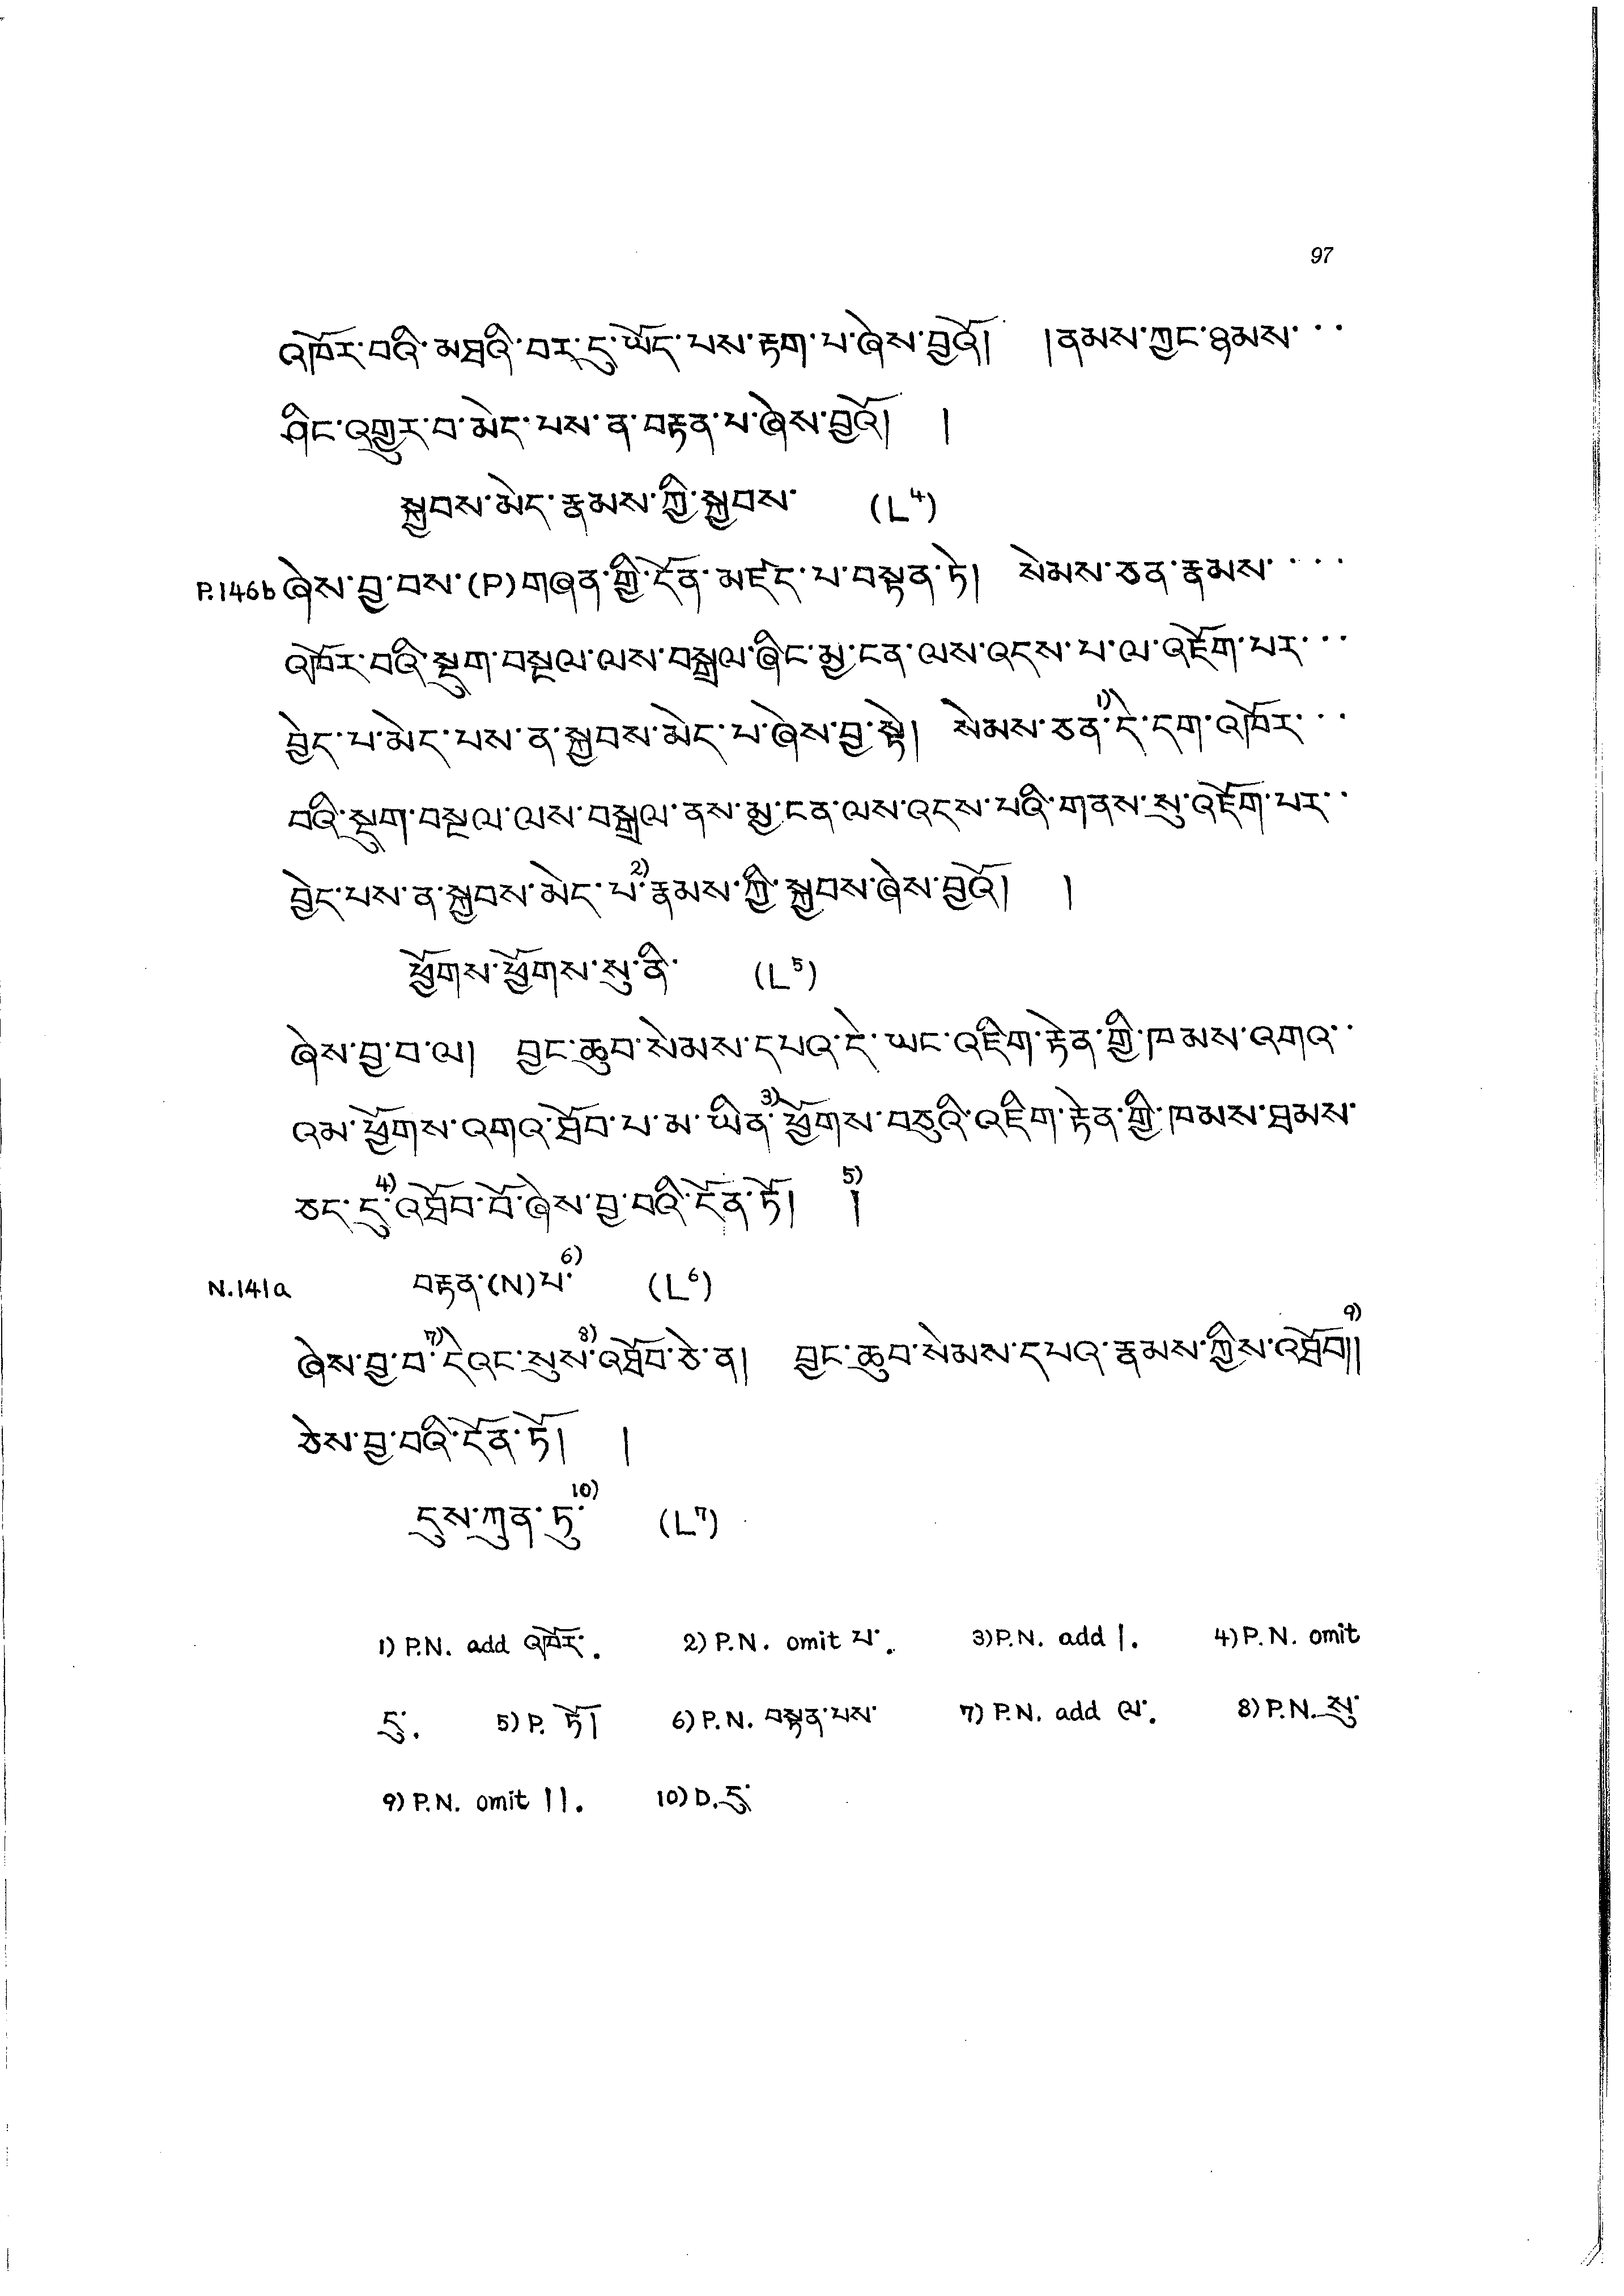 97
འཁོར་བའི་མཐའི་བར་དུ་ཡོད་པས་རྟག་པ་ཞེས་བྱའོ། །ནམས་ཀྱང་ཉམས་···
ཤིང་འགྱུར་བ་མེད་པས་ན་བརྟན་པ་ཞེས་བྱའོ། །
སྐྱབས་མེད་རྣམས་ཀྱི་སྐྱབས་ (L⁴)
P.146b ཞེས་བྱ་བས་(P)གཞན་གྱི་དོན་མཛད་པ་བསྟན་ཏེ། སེམས་ཅན་རྣམས་····
འཁོར་བའི་སྡུག་བསྔལ་ལས་བསྒྲལ་ཞིང་མྱ་ངན་ལས་འདས་པ་ལ་འཇོག་པར་···
བྱེད་པ་མེད་པས་ན་སྐྱབས་མེད་པ་ཞེས་བྱ་སྟེ། སེམས་ཅན་¹⁾དེ་དག་འཁོར་···
བའི་སྡུག་བསྔལ་ལས་བསྒྲལ་ནས་མྱ་ངན་ལས་འདས་པའི་གནས་སུ་འཇོག་པར་··
བྱེད་པས་ན་སྐྱབས་མེད་པ་²⁾རྣམས་ཀྱི་སྐྱབས་ཞེས་བྱའོ། །
ཕྱོགས་ཕྱོགས་སུ་ནི་ (L⁵)
ཞེས་བྱ་བ་ལ། བྱང་ཆུབ་སེམས་དཔའ་དེ་ཡང་འཇིག་རྟེན་གྱི་ཁམས་འགའ་··
འམ་ཕྱོགས་འགའ་ཐོབ་པ་མ་ཡིན་³⁾ཕྱོགས་བཅུའི་འཇིག་རྟེན་གྱི་ཁམས་ཐམས་
ཅད་དུ་⁴⁾འཐོབ་བོ་ཞེས་བྱ་བའི་དོན་ཏོ། ⁵⁾།
N.141a བརྟན་(N)པ་⁶⁾ (L⁶)
ཞེས་བྱ་བ་⁷⁾དེའང་སུས་⁸⁾འཐོབ་ཅེ་ན། བྱང་ཆུབ་སེམས་དཔའ་རྣམས་ཀྱིས་འཐོབ།།⁹⁾
ཅེས་བྱ་བའི་དོན་ཏོ། །
དུས་ཀུན་ཏུ་¹⁰⁾ (L⁷)
1) P.N. add འཁོར་. 2) P.N. omit པ་. 3) P.N. add །. 4) P.N. omit
དུ་. 5) P. ཏོ། 6) P.N. བསྟན་པས་ 7) P.N. add ལ་. 8) P.N. སུ་
9) P.N. omit །།. 10) D. དུ་